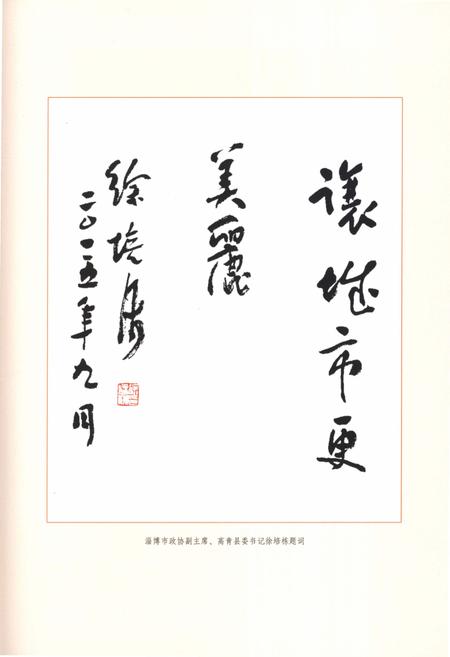 讓城市更
美麗
徐培栋
二〇一五年九月
淄博市政协副主席、高青县委书记徐培栋题词